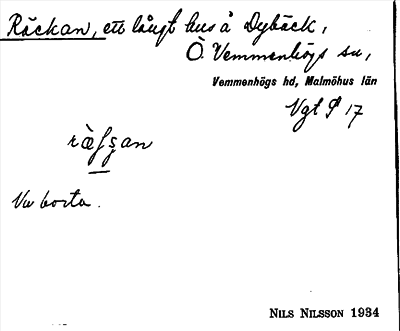 Räckan, ett långt hus å Dybäck,
Ö Vemmenhögs sn,
Vemmenhögs hd, Malmöhus län
Vgt S 17
Nu borta.
NILS NILSSON 1934